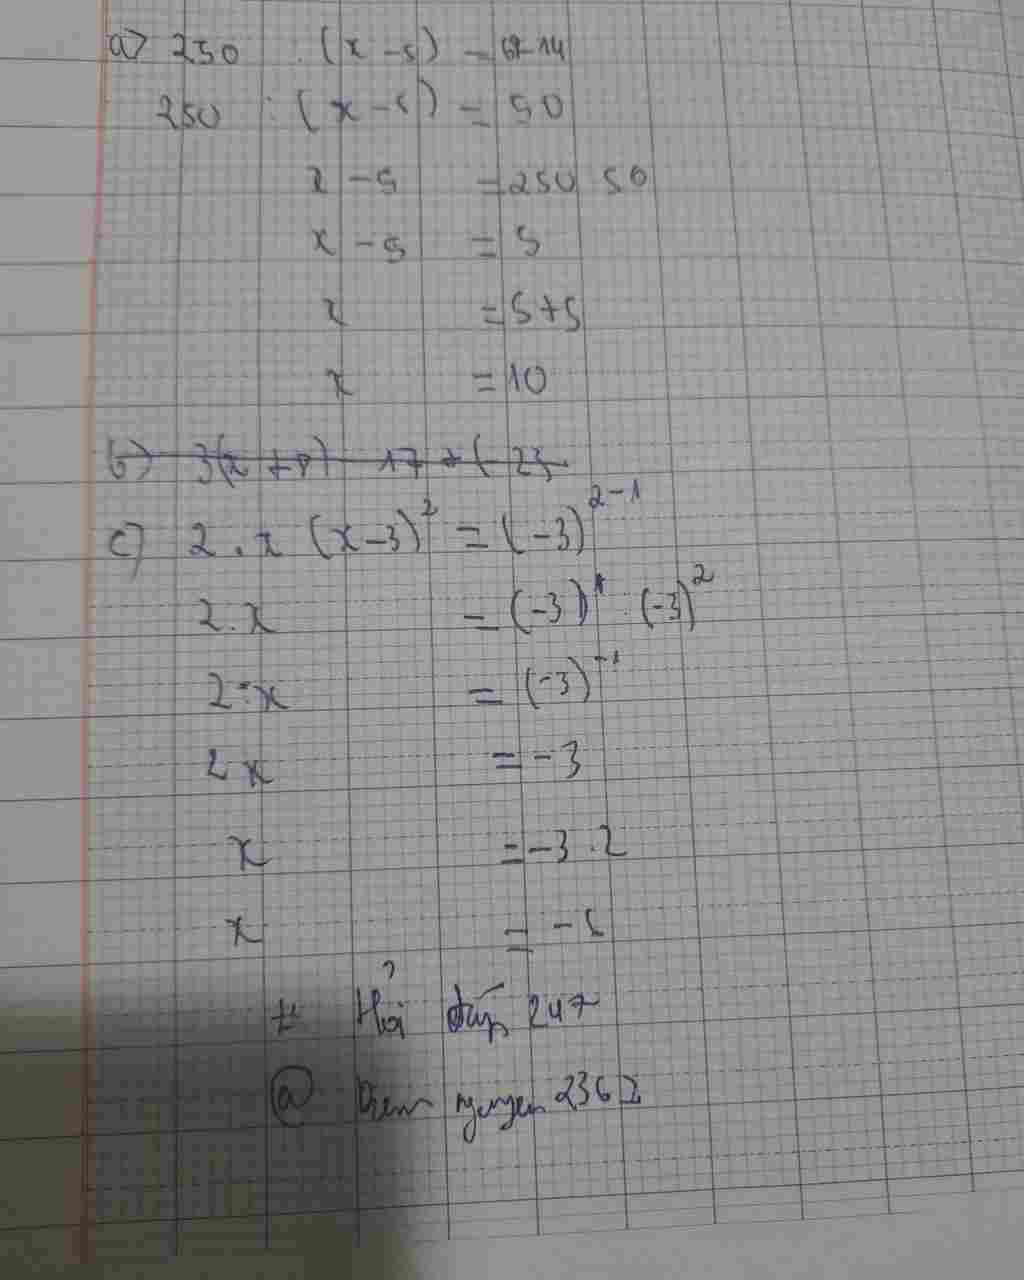 a) 250 : (x - 5) = 64-14
250 : (x - 5) = 50
x - 5 = 250 50
x - 5 = 5
x = 5+5
x = 10
b) 3(x + 8) 17 + ( 23
c) 2 . x (x-3)² = (-3)²⁻¹
2.x = (-3)¹ : (-3)²
2.x = (-3)⁻¹
2x = -3
x = -3 . 2
x = -5
Hỏi đáp 247
@ Diem nguyen 2362